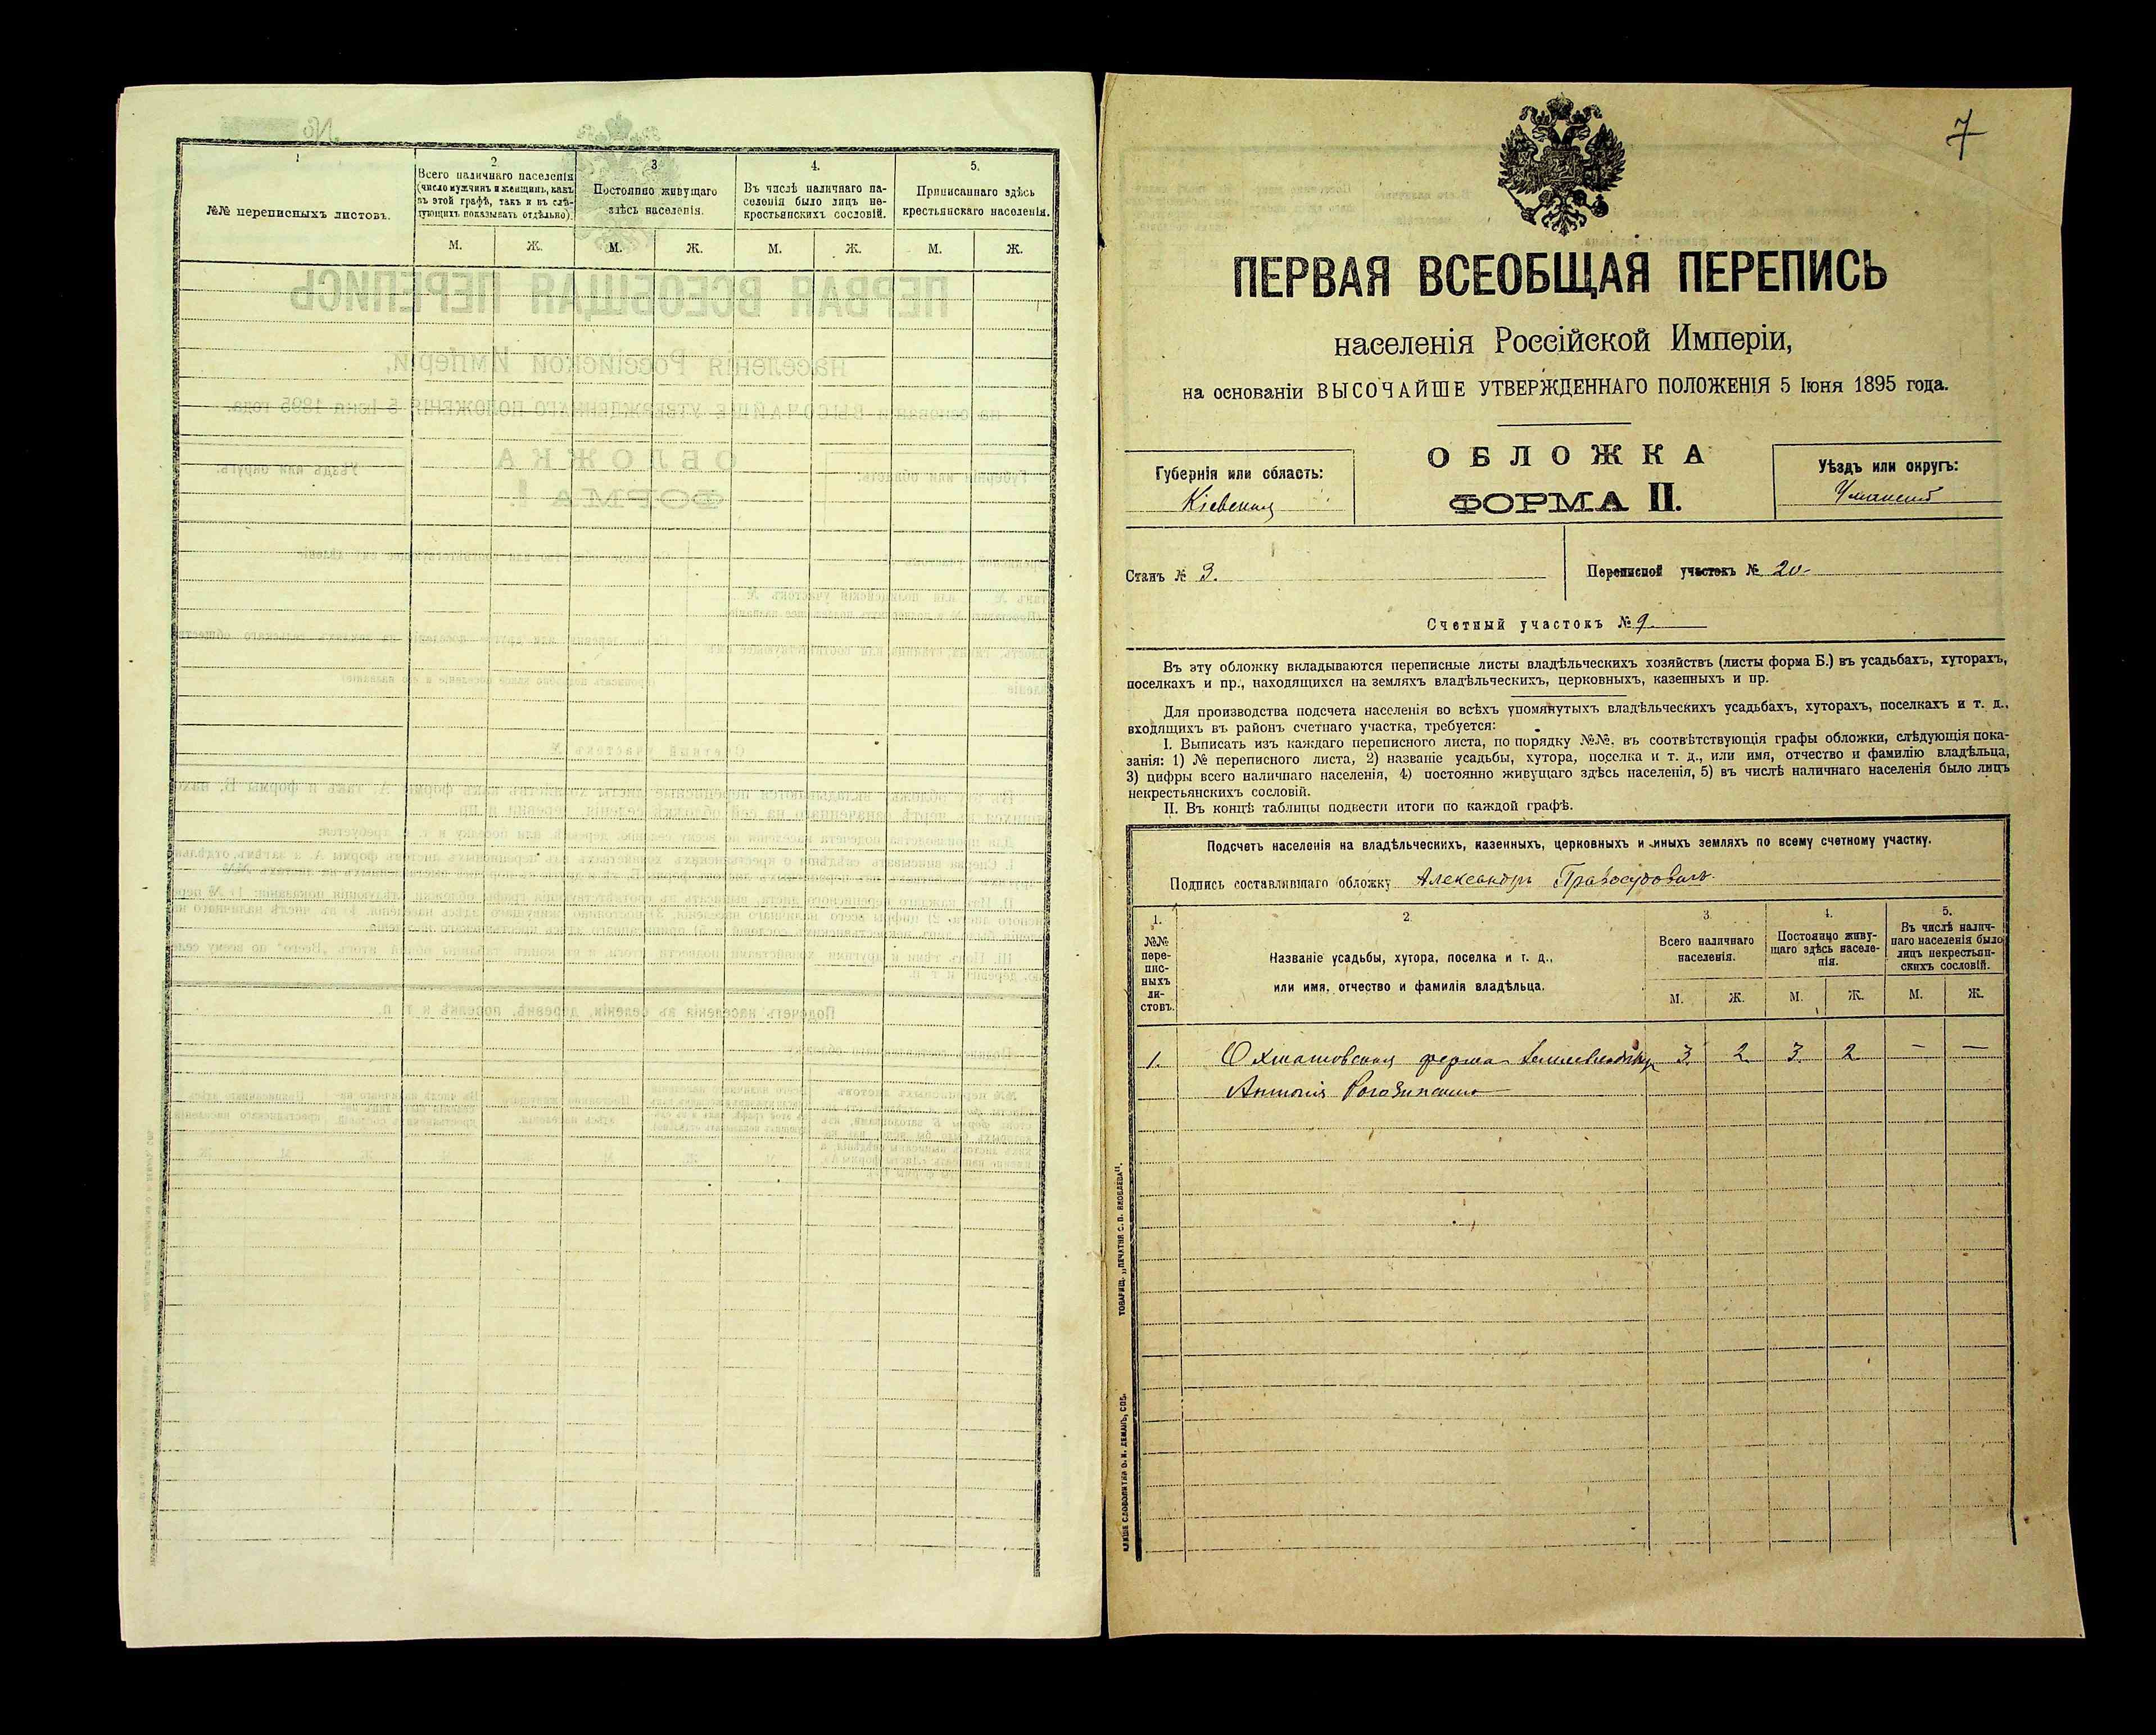 1
№№ переписныхъ листовъ.
2
Всего наличнаго населенія
(число мужчинъ и женщинъ, какъ
въ этой графѣ, такъ и въ слѣ-
дующихъ показывать отдѣльно).
3
Постоянно живущаго
здѣсь населенія.
4.
Въ числѣ наличнаго на-
селенія было лицъ не-
крестьянскихъ сословій.
5.
Приписаннаго здѣсь
крестьянскаго населенія.
М. Ж. М. Ж. М. Ж. М. Ж.
7
ПЕРВАЯ ВСЕОБЩАЯ ПЕРЕПИСЬ
населенія Россійской Имперіи,
на основаніи ВЫСОЧАЙШЕ УТВЕРЖДЕННАГО ПОЛОЖЕНІЯ 5 Іюня 1895 года.
Губернія или область:
Кіевская
ОБЛОЖКА
ФОРМА II.
Уѣздъ или округъ:
Уманскій
Станъ № 3.
Переписной участокъ № 20
Счетный участокъ № 9.
Въ эту обложку вкладываются переписные листы владѣльческихъ хозяйствъ (листы форма Б.) въ усадьбахъ, хуторахъ,
поселкахъ и пр., находящихся на земляхъ владѣльческихъ, церковныхъ, казенныхъ и пр.
Для производства подсчета населенія во всѣхъ упомянутыхъ владѣльческихъ усадьбахъ, хуторахъ, поселкахъ и т. д.,
входящихъ въ районъ счетнаго участка, требуется:
I. Выписать изъ каждаго переписного листа, по порядку №№, въ соотвѣтствующія графы обложки, слѣдующія пока-
занія: 1) № переписного листа, 2) названіе усадьбы, хутора, поселка и т. д., или имя, отчество и фамилію владѣльца,
3) цифры всего наличнаго населенія, 4) постоянно живущаго здѣсь населенія, 5) въ числѣ наличнаго населенія было лицъ
некрестьянскихъ сословій.
II. Въ концѣ таблицы подвести итоги по каждой графѣ.
Подсчетъ населенія на владѣльческихъ, казенныхъ, церковныхъ и иныхъ земляхъ по всему счетному участку.
Подпись составлявшаго обложку Александръ Правосудовичъ
1.
№№
пере-
пис-
ныхъ
ли-
стовъ.
2.
Названіе усадьбы, хутора, поселка и т. д.,
или имя, отчество и фамилія владѣльца.
3.
Всего наличнаго
населенія.
4.
Постоянно живу-
щаго здѣсь населе-
нія.
5.
Въ числѣ налич-
наго населенія было
лицъ некрестьян-
скихъ сословій.
М. Ж. М. Ж. М. Ж.
1. Охматовская ферма 3 2 3 2 — —
Антонія
ТОВАРИЩ. „ПЕЧАТНЯ С. П. ЯКОВЛЕВА".
КЛИШЕ СЛОВОЛИТНИ О. И. ЛЕМАНЪ, СПБ.